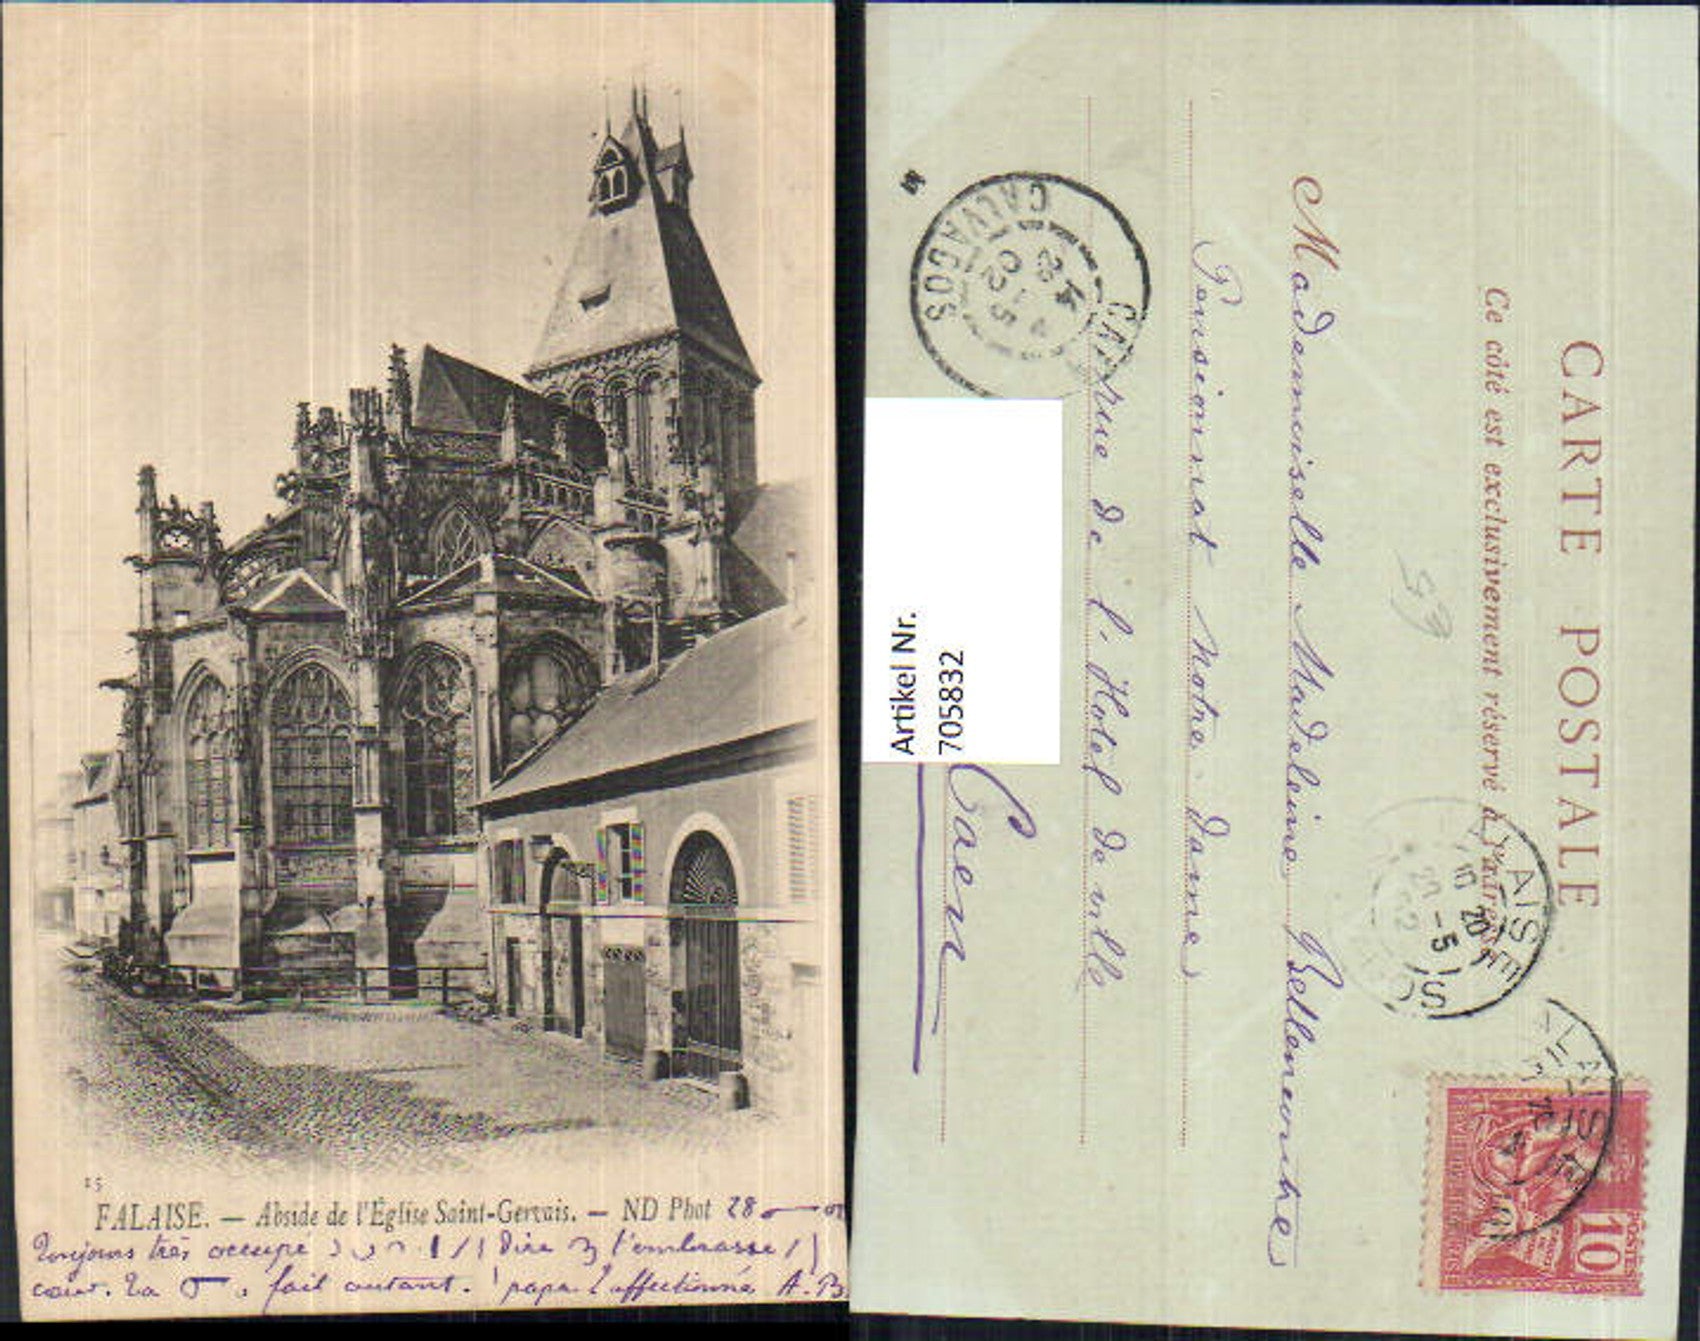 15
FALAISE. — Abside de l'Église Saint-Gervais. — ND Phot 28
Toujours très occupé dire l'embrasse
cœur. La fait autant. papa affectionné A. B.
CARTE POSTALE
Ce côté est exclusivement réservé à l'adresse
53
Mademoiselle Madeleine Bellemontre
Pensionnat Notre-Dame
rue de l'Hotel de ville
Caen
CALVADOS
5
02
FALAISE
20 -5
02
FALAISE
POSTES
10
Artikel Nr.
705832